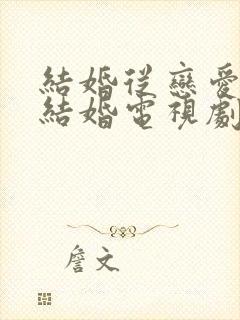 結婚從戀愛
結婚電視劇
詹文